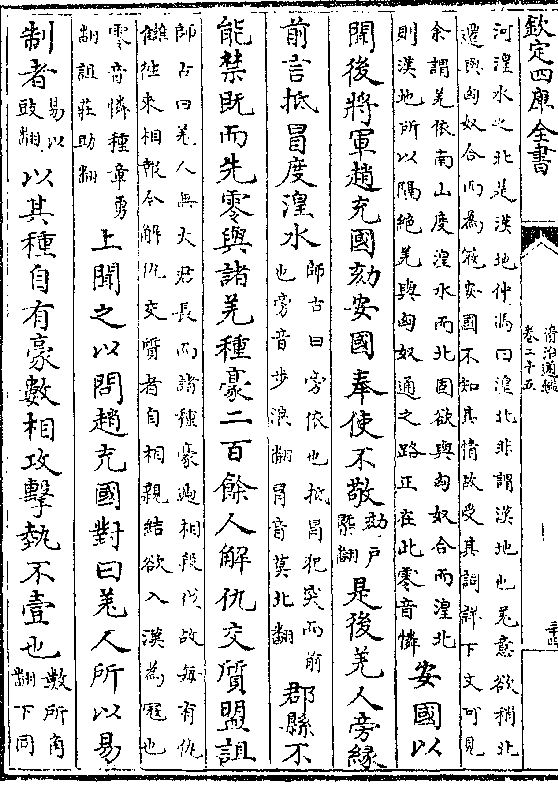 欽定四庫全書
資治通鑑
卷二十五
河湟水之北是漢地仲馮曰湟北非謂漢地也羌意欲稍北
還與匈奴合而為寇安國不知其情故受其詞詳下文可見
余謂羌依南山度湟水而北固欲與匈奴合而湟北
則漢地所以隔絶羌與匈奴通之路正在此零音憐
安國以
聞後將軍趙充國劾安國奉使不敬
劾戶
槩翻
是後羌人旁緣
前言抵冒度湟水
師古曰旁依也抵冒犯突而前
也旁音步浪翻冒音莫北翻
郡縣不
能禁既而先零與諸羌種豪二百餘人解仇交質盟詛
師古曰羌人無大君長而諸種豪遞相殺伐故每有仇
讎往來相報今解仇交質者自相親結欲入漢為寇也
零音憐種章勇
翻詛莊助翻
上聞之以問趙充國對曰羌人所以易
制者
易以
豉翻
以其種自有豪數相攻擊埶不壹也
數所角
翻下同